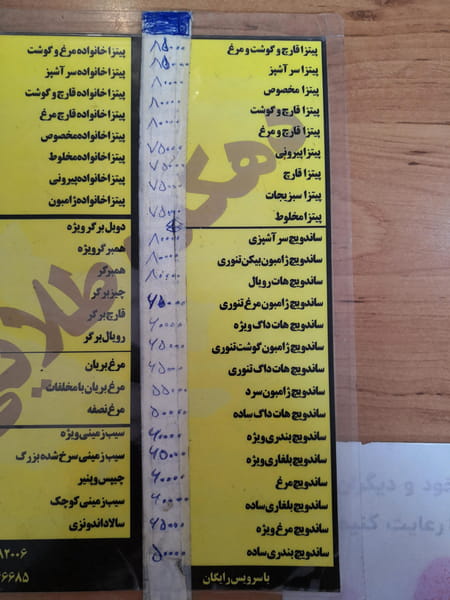 پیتزا قارچ و گوشت و مرغ ۸۵۰۰۰
پیتزا سرآشپز ۸۵۰۰۰
پیتزا مخصوص ۸۰۰۰۰
پیتزا قارچ و گوشت ۸۰۰۰۰
پیتزا قارچ و مرغ ۸۰۰۰۰
پیتزا پپرونی ۷۵۰۰۰
پیتزا قارچ ۷۵۰۰۰
پیتزا سبزیجات ۷۵۰۰۰
پیتزا مخلوط ۷۵۰۰۰
ساندویچ سرآشپزی ۸۰۰۰۰
ساندویچ ژامبون بیکن تنوری ۸۰۰۰۰
ساندویچ هات رویال ۸۰۰۰۰
ساندویچ ژامبون مرغ تنوری ۶۵۰۰۰
ساندویچ هات داگ ویژه ۶۰۰۰۰
ساندویچ ژامبون گوشت تنوری ۶۵۰۰۰
ساندویچ هات داگ تنوری ۶۵۰۰۰
ساندویچ ژامبون سرد ۵۵۰۰۰
ساندویچ هات داگ ساده ۵۰۰۰۰
ساندویچ بندری ویژه ۶۰۰۰۰
ساندویچ بلغاری ویژه ۶۵۰۰۰
ساندویچ مرغ ۶۰۰۰۰
ساندویچ بلغاری ساده ۶۰۰۰۰
ساندویچ مرغ ویژه ۶۵۰۰۰
ساندویچ بندری ساده ۵۰۰۰۰
با سرویس رایگان
پیتزا خانواده مرغ و گوشت
پیتزا خانواده سرآشپز
پیتزا خانواده قارچ و گوشت
پیتزا خانواده قارچ مرغ
پیتزا خانواده مخصوص
پیتزا خانواده مخلوط
پیتزا خانواده پپرونی
پیتزا خانواده ژامبون
دوبل برگر ویژه
همبرگر ویژه
همبرگر
چیز برگر
قارچ برگر
رویال برگر
مرغ بریان
مرغ بریان با مخلفات
مرغ نصفه
سیب زمینی ویژه
سیب زمینی سرخ شده بزرگ
چیپس و پنیر
سیب زمینی کوچک
سالاد اندونزی
۸۲۰۰۶
۶۶۸۵
خود و دیگران
رعایت کنید